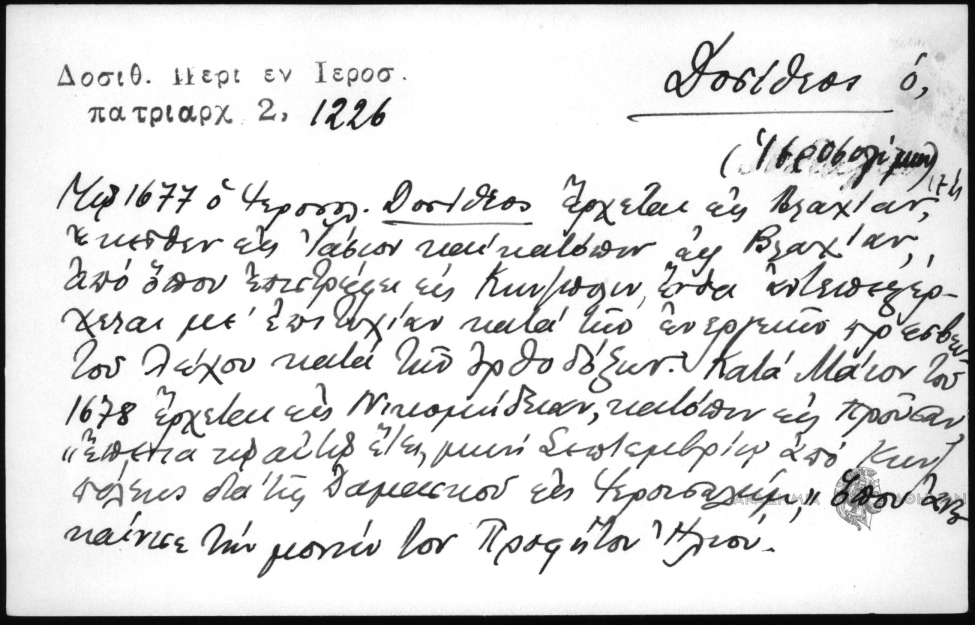 Δοσιθ. Περι εν Ιεροσ.
πατριαρχ 2, 1226
Δοσίθεος ὁ,
(Ἱεροσολύμων)
Τῷ 1677 ὁ Ἱεροσολ. Δοσίθεος ἔρχεται εἰς Βλαχίαν,
ἐκεῖθεν εἰς Ἰάσιον καὶ κατόπιν εἰς Βλαχίαν,
ἀπό ὅπου ἐπιστρέφει εἰς Κων/πολιν, ἔνθα ἀντεπεξέρ-
χεται μέ ἐπιτυχίαν κατά τῶν ἐνεργειῶν πρέσβεων
τοῦ Λέχου κατά τῶν ὀρθοδόξων. Κατά Μάϊον τοῦ
1678 ἔρχεται εἰς Νικομήδειαν, κατόπιν εἰς Προῦσαν
"ἔπειτα τῷ αὐτῷ ἔτει, μηνί Σεπτεμβρίῳ ἀπό Κων/
πόλεως διά τῆς Δαμασκοῦ εἰς Ἱερουσαλήμ," ὅπου ἀνε-
καίνισε τήν μονήν τοῦ Προφήτου Ἠλιού.